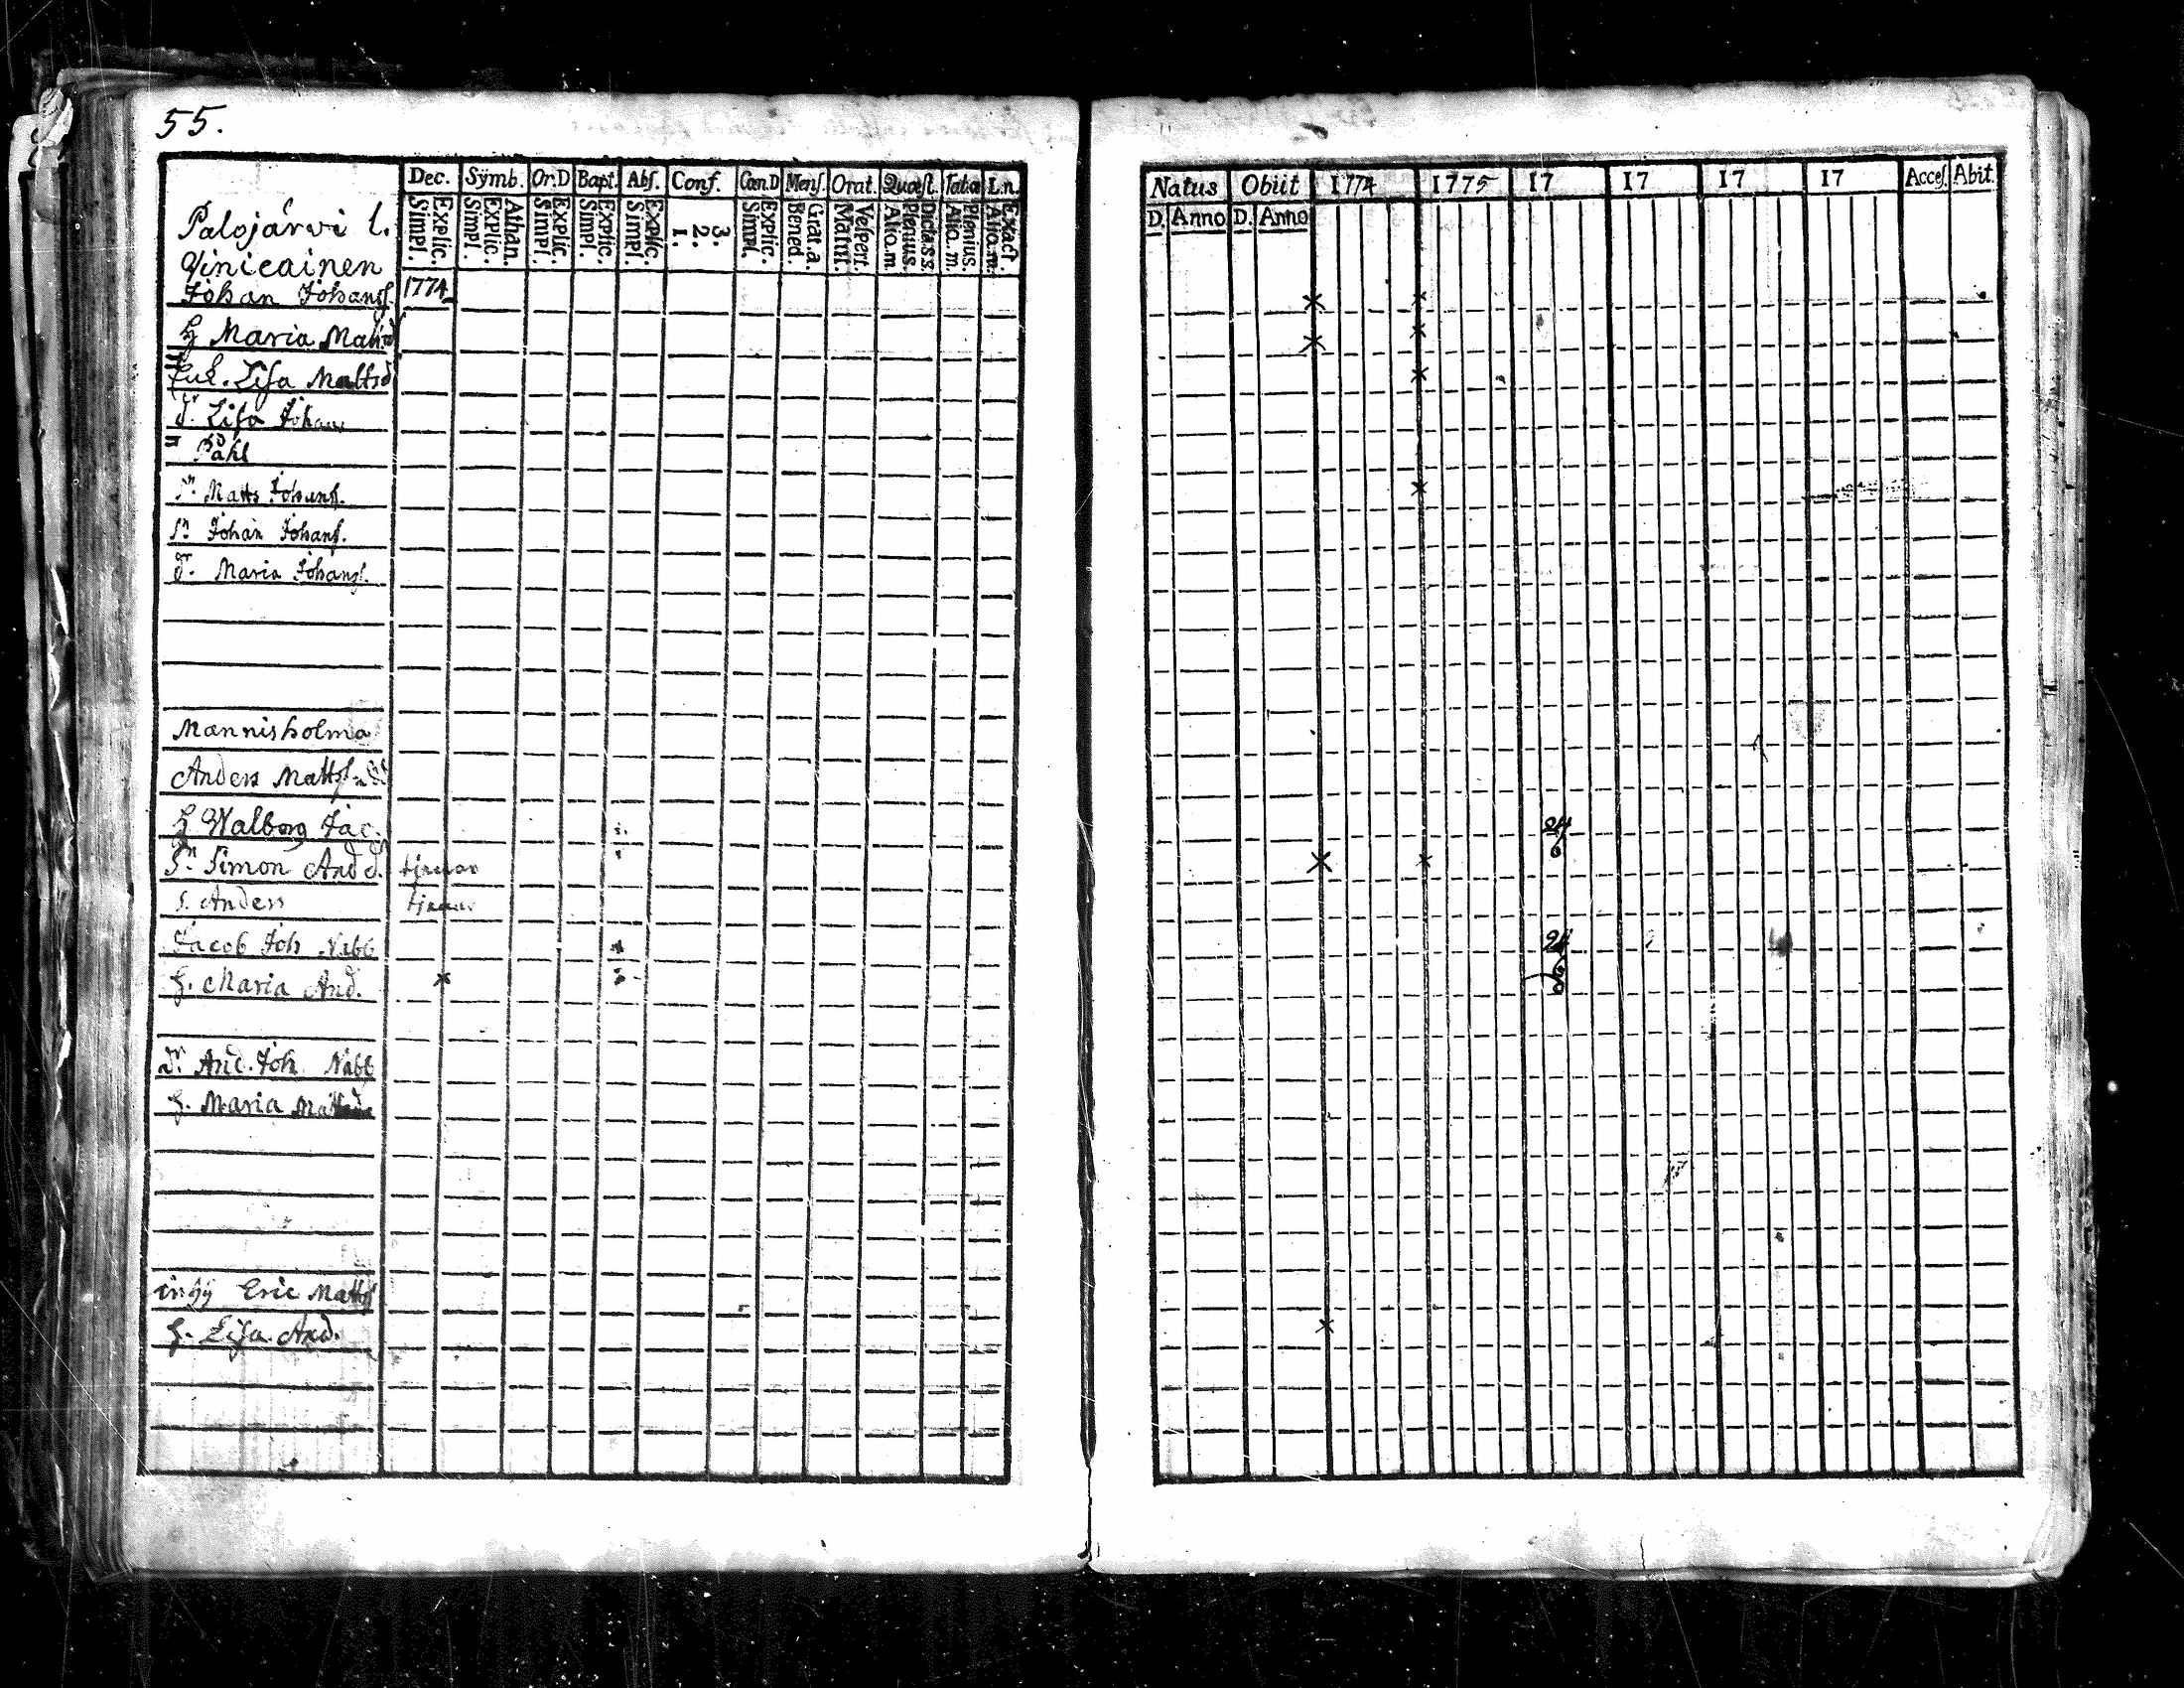 55.
Dec. Symb. Or.D Bapt. Abs. Conf. Can.D Mens. Orat. Quæst. Tabœ L.n.
Explic. Simpl. Athan. Explic. Simpl. Explic. Simpl. Explic. Simpl. Explic. Simpl. 3. 2. 1. Explic. Simpl. Grat.a. Bened. Vespert. Matut. Dicta.s.s. Plenius. Aliq.m. Plenius. Aliq.m. Exact. Aliq.m.
Palojärwi l.
Johan Johans. 1774
H Maria
Lisa Mattsd
dr. Lisa Johans
Påhl
sn. Matts Johans.
sn Johan Johans.
dr. Maria Johans.
Mannisholma
Anders Matts.
H Walborg Jac.
Sn. Simon And tjenar
s. Anders tjenar
Jacob Joh Nabb
H. Maria And.
And. Joh. Nabb
H. Maria
Eric Matts
H. Lisa And.
Natus Obiit 1774 1775 17 17 17 17 Acces. Abit.
D. Anno D. Anno
24
24